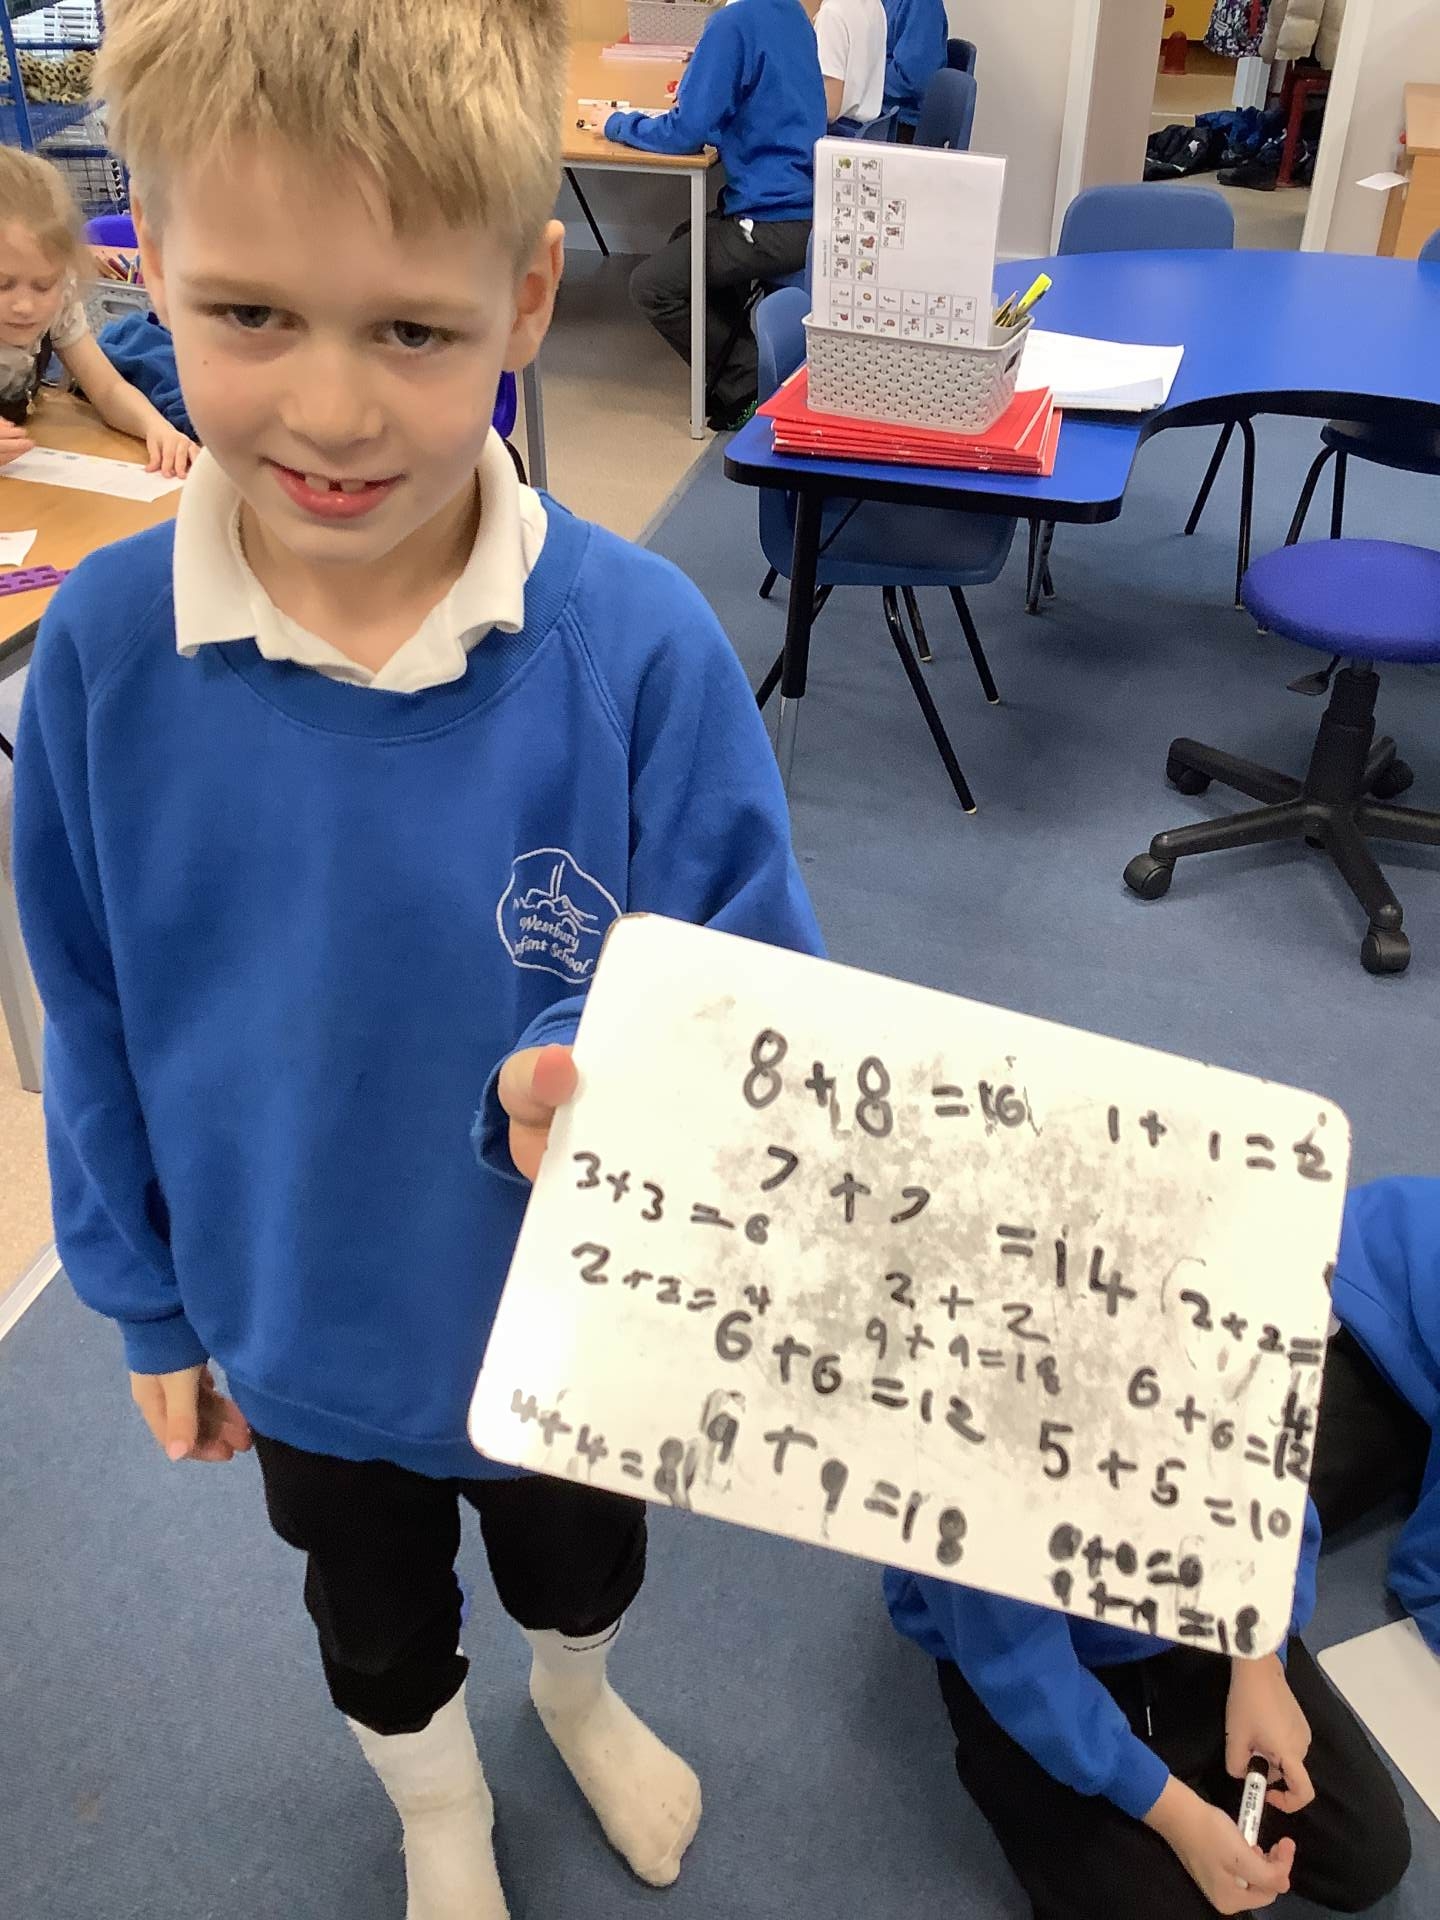 Westbury
Infant School
8 + 8 = 16
1 + 1 = 2
7 + 7 = 14
3 + 3 = 6
2 + 2 = 4
2 + 2
2 + 2 = 4
9 + 9 = 18
6 + 6 = 12
6 + 6 = 12
4 + 4 = 8
9 + 9 = 18
5 + 5 = 10
0 + 0 = 0
9 + 9 = 18